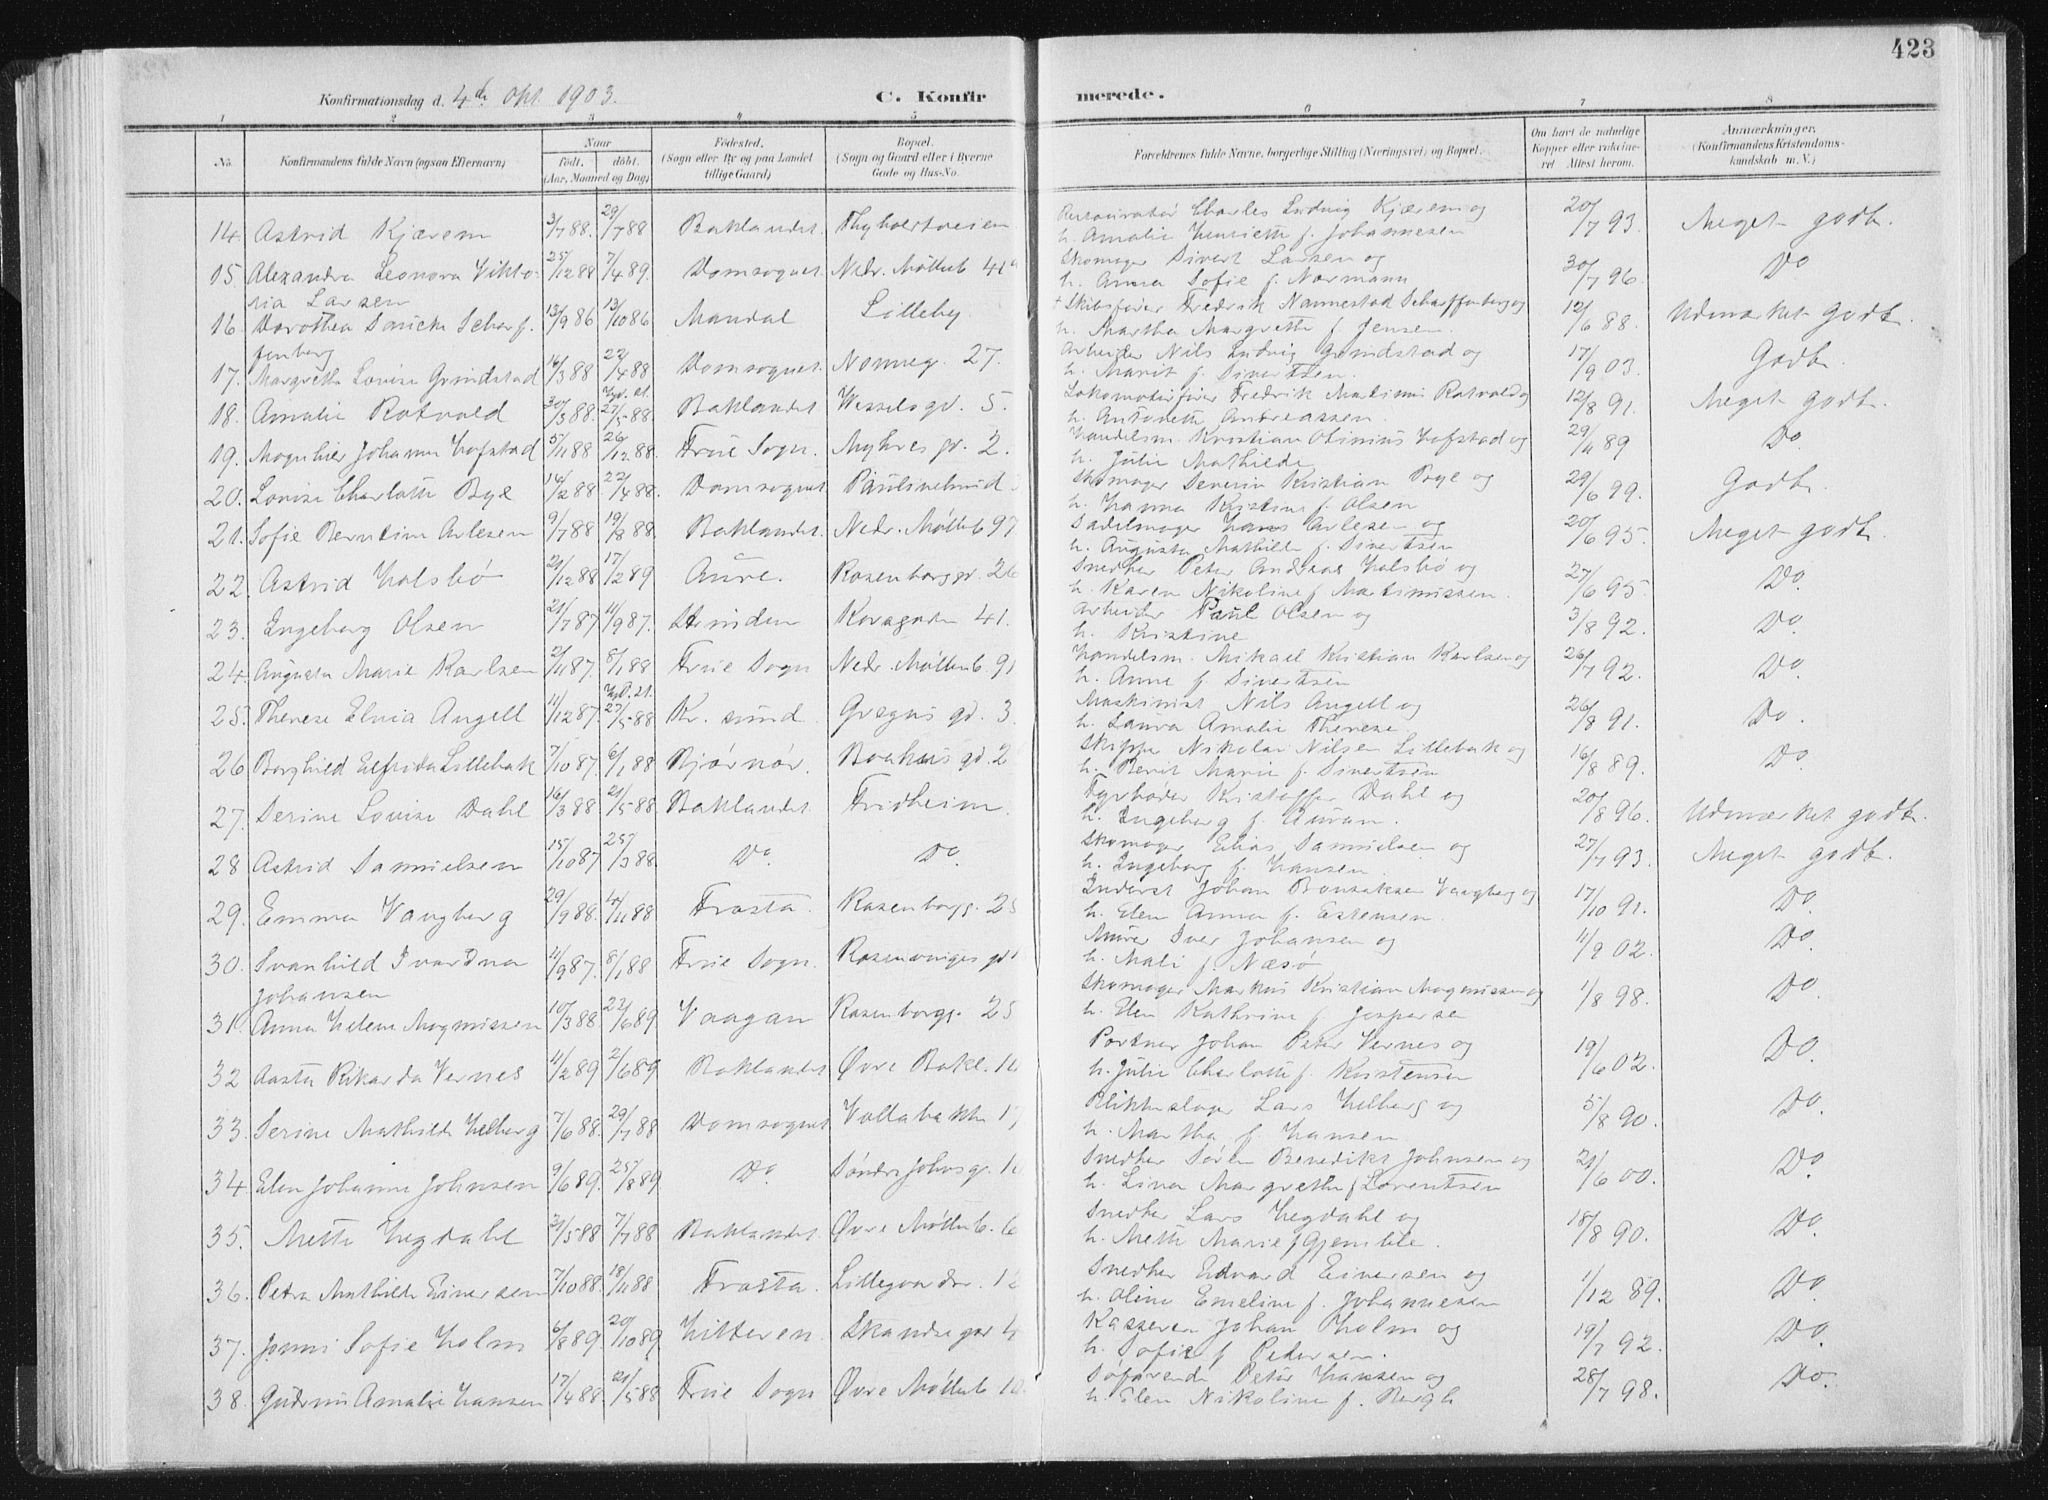 423
Konfirmationsdag d. 4de Okt. 1903. C. Konfirmerede.
1 2 3 4 5 6 7 8
No. Konfirmandens fulde Navn (ogsaa Efternavn) Naar født. døbt. (Aar, Maaned og Dag) Fødested. (Sogn eller By og paa Landet tillige Gaard) Bopæl. (Sogn og Gaard eller i Byerne Gade og Hus-No. Forældrenes fulde Navne, borgerlige Stilling (Næringsvei) og Bopæl. Om havt de naturlige Kopper eller vaccineret Attest herom. Anmærkninger. (Konfirmandens Kristendomskundskab m. V.)
14. Astrid Kjærem 3/7 88. 29/7 88 Baklandet. Thyholtveien Restauratør Charles Ludvig Kjærem og 20/7 93. Meget godt.
h. Amalie Henriette f. Johannesen
15. Alexandra Leonora Vikto- 25/12 88 7/4 89. Domsognet Nedr. Møllenb 41 Skomager Sivert Larsen og 30/7 96. Do
ria Larsen h. Anna Sofie f. Normann
16. Dorothea Smicke Scharf- 13/9 86 13/10 86 Mandal Lilleby. + Skibsfører Fredrik Nannestad Scharffenberg og 12/6 88. Udmærket Godt.
fenberg h. Martha Margrethe f. Jensen.
17. Margrethe Lovise Grindstad 16/3 88 22/4 88 Domsognet. Nonneg. 27. Arbeider Nils Ludvig Grindstad og 17/9 03. Godt.
h. Marit f. Sivertsen.
18. Amalie Rotvold 30/3 88. 27/5 88. Baklandet Wesselsgd. 5. Lokomotivfører Fredrik Maximus Rotvold og 12/8 91. Meget godt.
h. Antonette Andreassen
19. Magnhil Johanne Hofstad 5/11 88 26/12 88. Frue Sogn. Myhres gd. 2. Handelsm. Kristian Olinius Hofstad og 29/11 89 Do.
h. Julie Mathilde
20. Lovise Charlotte Bye 14/2 88. 22/4 88. Domsognet Paulinelund Skomager Severin Kristian Bye og 29/6 99. Godt.
h. Hanna Kristine f. Olsen
21. Sofie Berntine Arlesen 9/7 88 19/8 88. Baklandet. Nedr. Møllenb 97 Sadelmager Hans Arlesen og 20/6 95. Meget godt.
h. Augusta Mathilde f. Sivertsen
22. Astrid Holsbø 21/12 88 17/2 89 Aure. Rosenborggd. 26 Snedker Peter Andreas Holsbø og 27/6 95. Do.
h. Karen Nikoline f. Maximussen.
23. Ingeborg Olsen 21/7 87 11/9 87. Strinden Korsgaden 41. Arbeider Paul Olsen og 3/8 92. Do.
h. Kristine
24. Augusta Marie Karlsen 2/11 87. 8/1 88 Frue Sogn Nedr. Møllenb. 91 Handelsm. Mikael Kristian Karlsen og 26/7 92. Do.
h. Anne f. Sivertsen
25. Therese Elvia Angell 11/12 87. 27/5 88 Kr. sund. Gregus gd. 3. Maskinist Nils Angell og 26/8 91. Do.
h. Laura Amalie Therese
26 Borghild Elfrida Lillebak 7/10 87 6/1 88 Bjørnør. Baahus gd. 2 Skipper Nikolai Nilsen Lillebak og 16/8 89. Do.
h. Berit Marie f. Sivertsen
27. Serine Lovise Dahl 16/3 88 21/5 88 Baklandet. Fridheim. Fyrbøder Kristoffer Dahl og 20/8 96. Udmærket godt.
h. Ingeborg f. Auran.
28 Astrid Samuelsen 15/10 87 25/3 88 Do. Do. Skomager Elias Samuelsen og 27/7 93. Meget godt.
h. Ingeborg f. Hansen.
29. Emma Vaagberg 29/9 88. 4/11 88 Frosta. Rosenborgg. 25 Inderst Johan Bonsaksen Vaagberg og 17/10 91. Do.
h. Elen Anna f. Estensen.
30. Svanhild Ivardna 11/9 87. 8/1 88 Frue Sogn. Rosenvinges gd Murer Iver Johansen og 11/9 02. Do.
Johansen h. Mali f. Næsø
31. Anna Helene Magnussen 10/3 88 22/6 89 Vaagan Rosenborgg. 25 Skomager Markus Kristian Magnussen og 1/8 98. Do.
h. Elen Kathrine f. Jespersen
32 Aasta Rikarda Vernes 11/2 89 2/6 89 Baklandet Øvre Bakl. Portner Johan Peter Vernes og 19/6 02. Do.
h. Julie Charlotte f. Kristensen
33. Serine Mathilde Helberg 7/6 88. 29/7 88 Domsognet Vollabakken Blikkenslager Lars Helberg og 5/8 90. Do.
h. Martha f. Hansen
34 Elen Johanne Johnsen 9/6 89. 25/8 89 Do. Søndrejohsg. Snedker Søren Benedikt Johnsen og 21/6 00. Do.
h. Lina Margrethe f Lorentsen
35. Mette Hegdahl 21/5 88 7/7 88 Baklandet. Øvre Møllenb. 6 Snedker Lars Hegdahl og 18/8 90. Do.
h. Mette Marie f Gjemble.
36. Petra Mathilde Eiversen 7/10 88. 18/11 88 Frosta. Lillegaardsv. Snedker Edvard Eiversen og 1/12 89. Do.
h. Oline Emeline f. Johannesen
37. Jenni Sofie Holm 6/8 89. 20/10 89 Hitteren. Skandsegar 4 Kasserer Johan Holm og 19/7 92. Do.
h. Sofie f Pedersen.
38. Gudrun Amalie Hansen 17/4 88. 21/5 88 Frue Sogn Øvre Møllenb Søfarende Peter Hansen og 28/7 98. Do.
h. Elen Nikoline f. Bergh